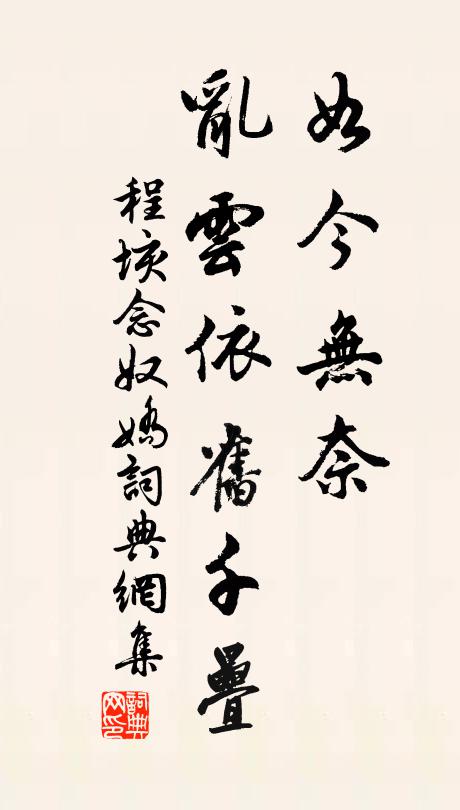 如今無奈
亂雲依舊千疊
程垓念奴嬌詞典網集
詞典網印